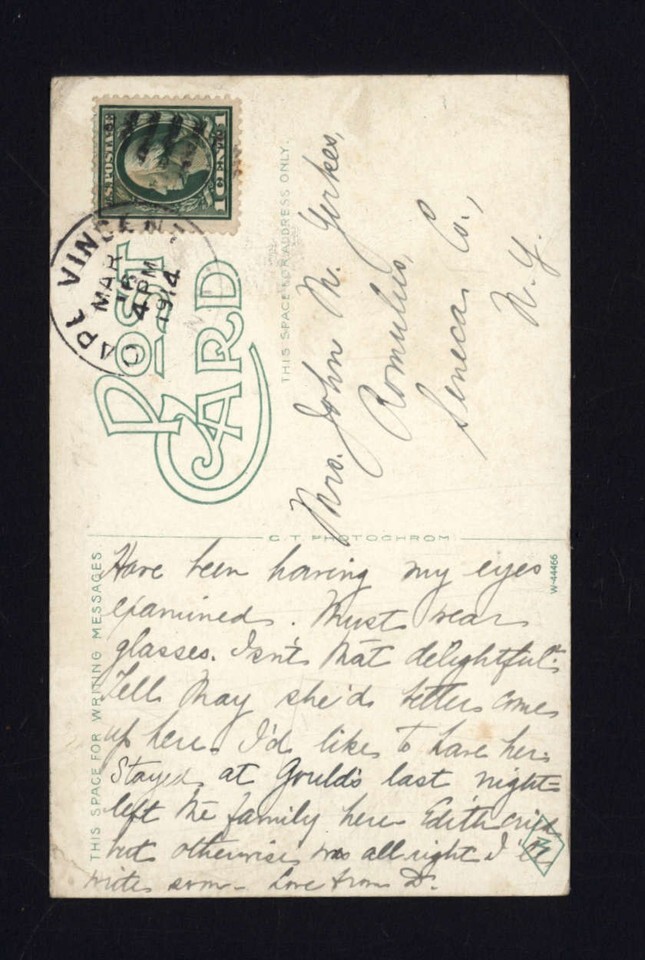 U.S. POSTAGE
1 CENT 1
CAPE VINCENT
MAR
18
4 PM
1914
POST
CARD
THIS SPACE FOR ADDRESS ONLY.
Mrs. John M. Yerkes,
Romulus,
Seneca Co.,
N. Y.
C. T. PHOTOCHROM
W-44466
THIS SPACE FOR WRITING MESSAGES
Have been having my eyes
examined. Must wear
glasses. Isn't that delightful.
Tell May she'd better come
up here. I'd like to have her.
Stayed at Gould's last night-
left the family here Edith cried
but otherwise was all right I'll
write soon - Love from D.